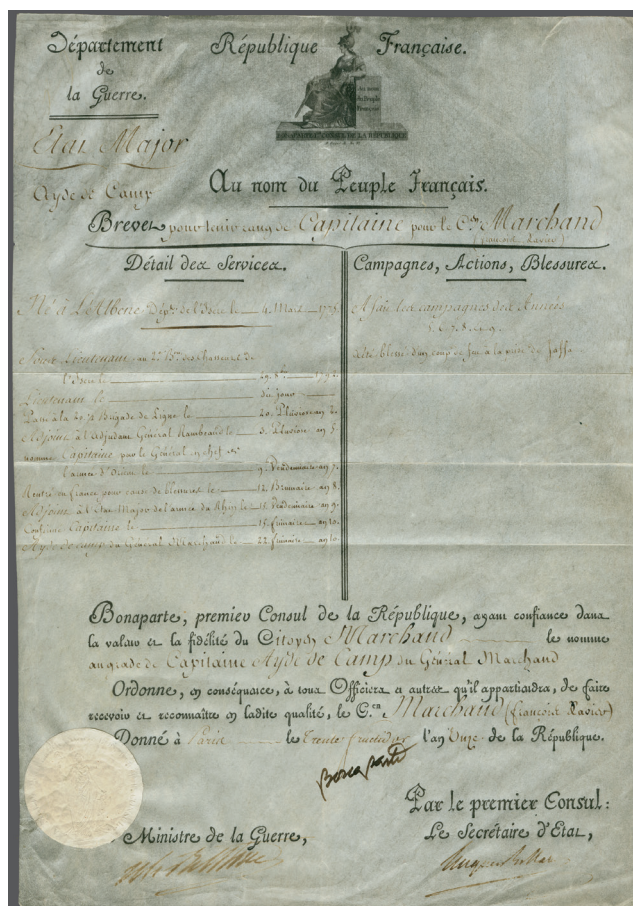 Département
de
la Guerre.
République Française.
Au nom
du Peuple
Français.
BONAPARTE 1er CONSUL DE LA REPUBLIQUE
Etat Major
Ayde de Camp
Au nom du Peuple Français.
Brevet pour tenir rang de Capitaine pour le Cen. Marchand
(françois Xavier)
Détail des Services.
Né à L'Albenc Dépt. de l'Isere le 4. Mars 177
Sous Lieutenant au 2e. Bon. des Chasseurs de
l'Isere le 29. 8bre 179
Lieutenant le dit jour
Passé à la Brigade de Ligne le 20. Pluviose an 2.
Adjoint à l'Adjudant Général Rambeaud le 3. Pluviose an 5.
nommé Capitaine par le Général en chef de
l'armée d'Orient le 9. Vendemiaire an 7.
Rentré en france pour cause de blessures le 12. Brumaire an 8.
Adjoint à l'Etat Major de l'armée du Rhin le 15. Vendemiaire an 9.
Confirmé Capitaine le 15. frimaire an 10.
Ayde de camp du Général Marchand le 22. frimaire an 10.
Campagnes, Actions, Blessures.
A fait les campagnes des Années
5. 6. 7. 8. et 9.
été blessé d'un coup de feu à la prise de Jaffa
Bonaparte, premier Consul de la République, ayant confiance dans
la valeur et la fidélité du Citoyen Marchand le nomme
au grade de Capitaine Ayde de Camp du Général Marchand
Ordonne, en conséquence, à tous Officiers et autres qu'il appartiendra, de faire
recevoir et reconnaître en ladite qualité, le C.en Marchand (françois Xavier)
Donné à Paris le Trente fructidor l'an Onze de la République.
Bonaparte
Par le premier Consul:
Ministre de la Guerre,
Le Secrétaire d'Etat,